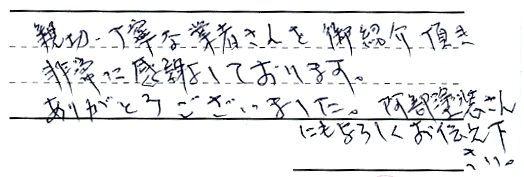 親切・丁寧な業者さんを御紹介頂き
非常に感謝しております。
ありがとうございました。阿部塗装さん
にもよろしくお伝え下
さい。